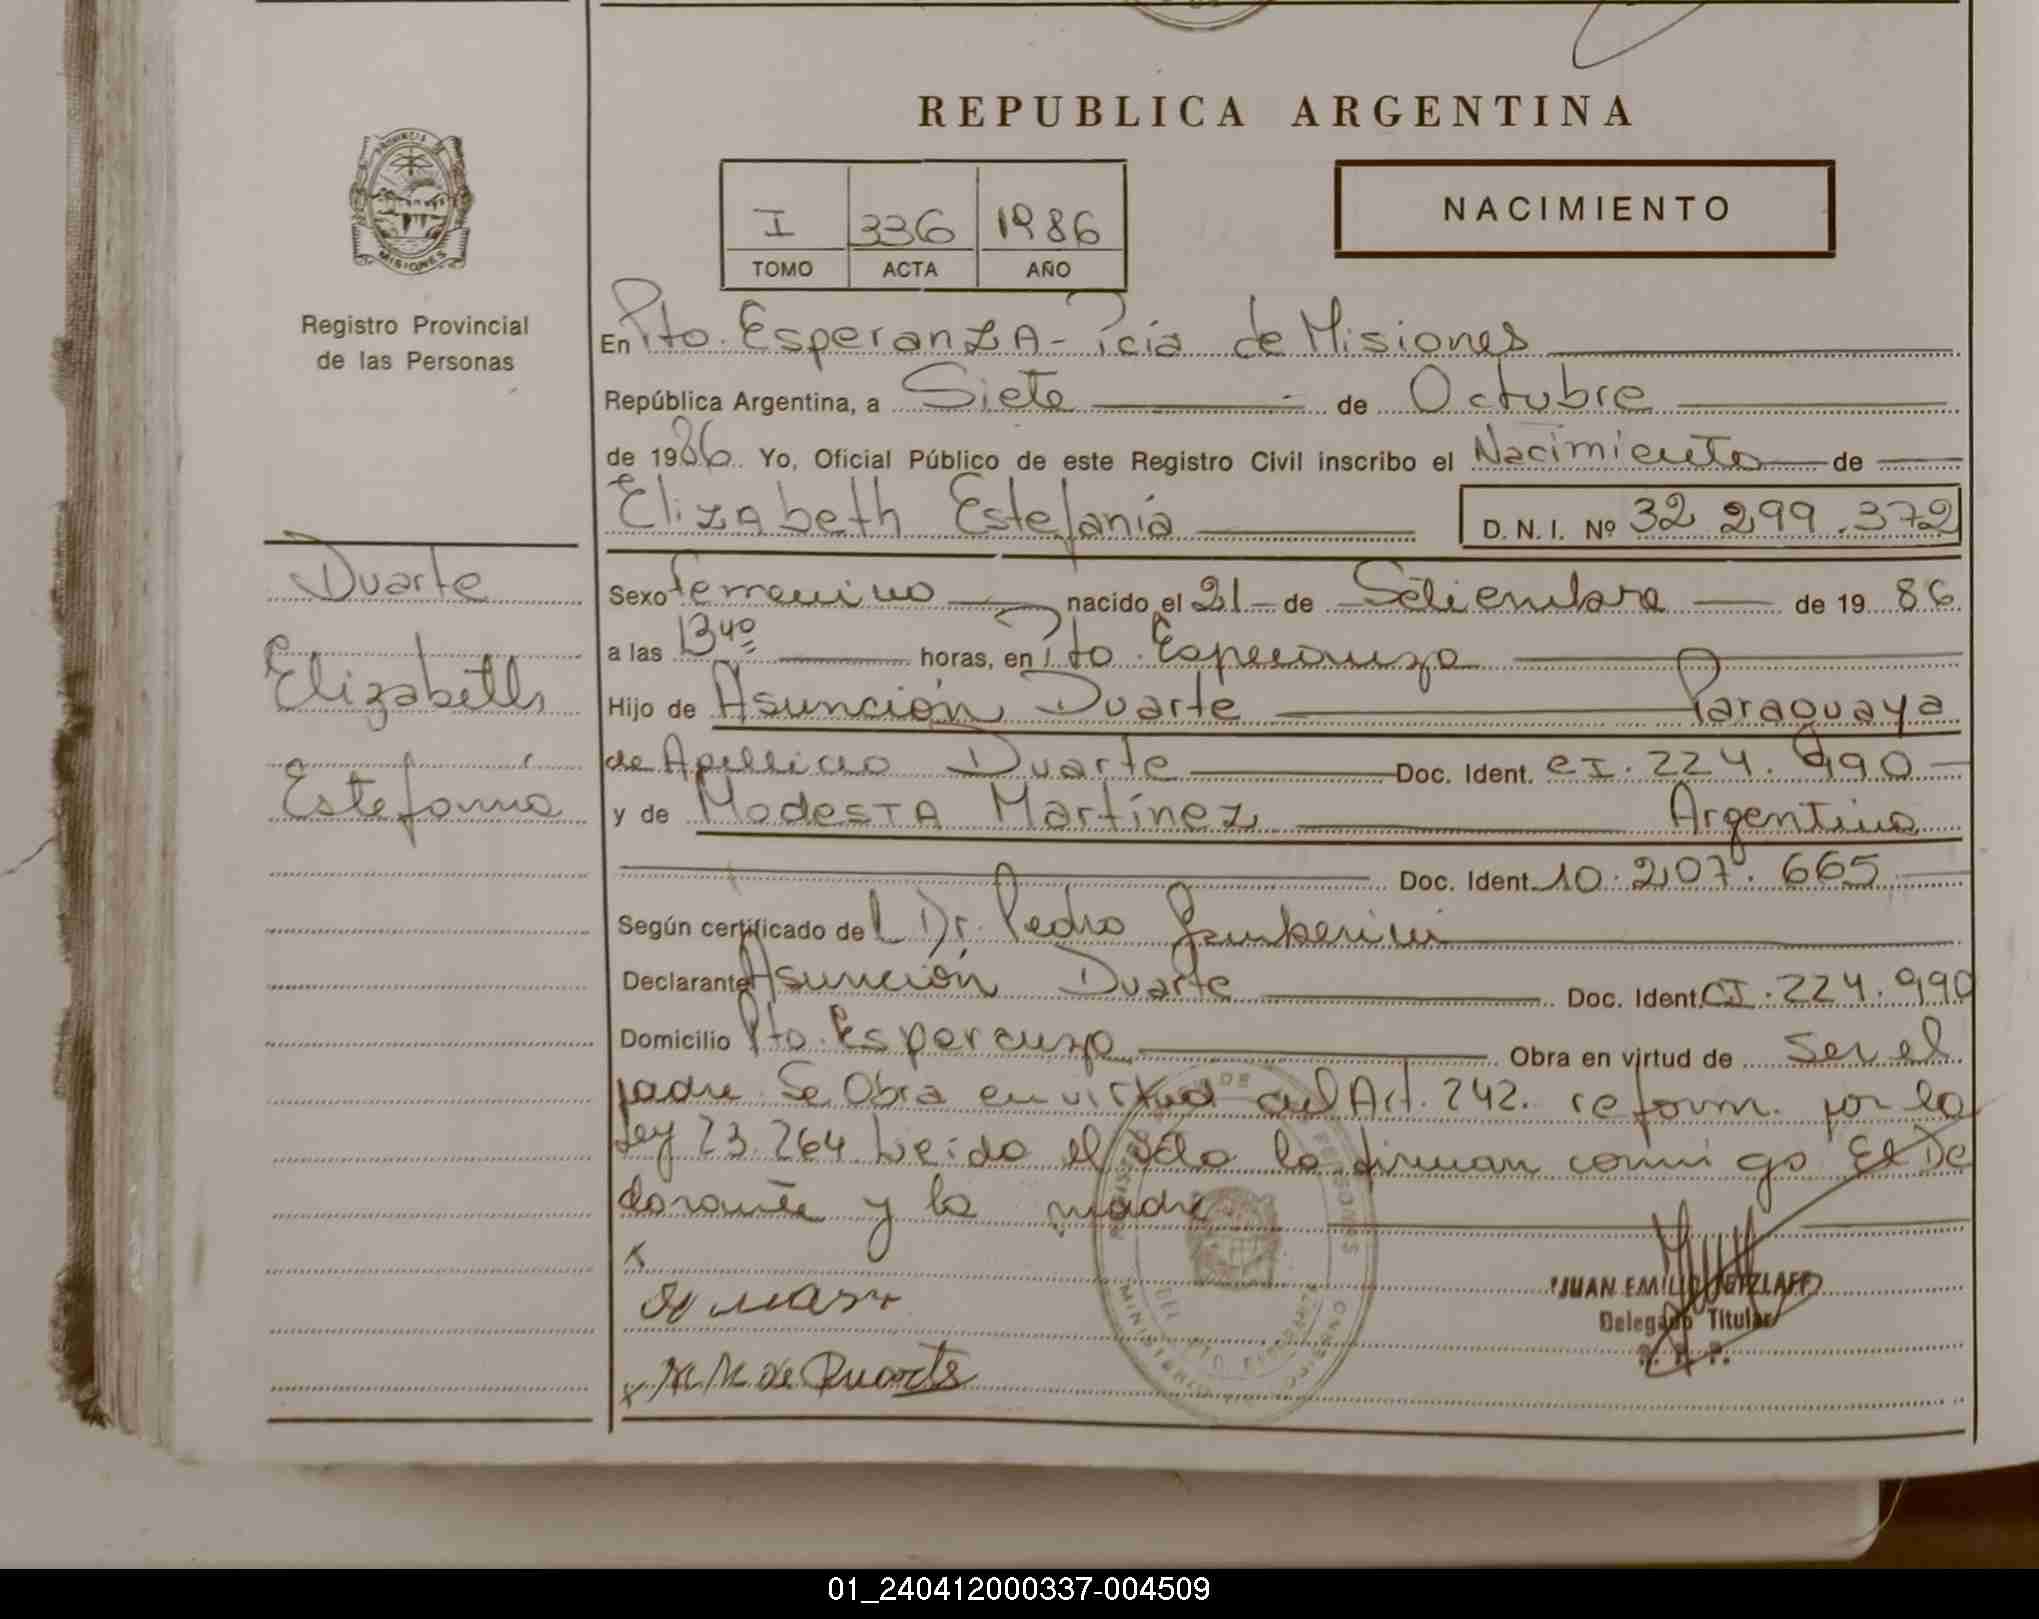 REPUBLICA ARGENTINA
NACIMIENTO
I 336 1986
TOMO ACTA AÑO
PROVINCIA DE
MISIONES
Registro Provincial
de las Personas
En Pto. Esperanza - Pcia de Misiones
República Argentina, a Siete de Octubre
de 1986. Yo, Oficial Público de este Registro Civil inscribo el Nacimiento de
Elizabeth Estefanía D. N. I. Nº 32 299.372
Duarte
Elizabeth
Estefanía
Sexo femenino nacido el 21 - de Setiembre de 19 86
a las 13 40 horas, en Pto. Esperanza
Hijo de Asunción Duarte Paraguaya
de Apellido Duarte Doc. Ident. CI. 224.990
y de Modesta Martínez Argentina
Doc. Ident. 10.207.665
Según certificado del Dr. Pedro
Declarante Asunción Duarte Doc. Ident. CI. 224.990
Domicilio Pto. Esperanza Obra en virtud de Ser el
padre. Se Obra en virtud del Art. 242. reform. por la
Ley 23.264. Leido el Acta la firman conmigo El De
clarante y la madre
JUAN EMILIO
Delegado Titular
R. P. P.
M. M. de Duarte
01_240412000337-004509